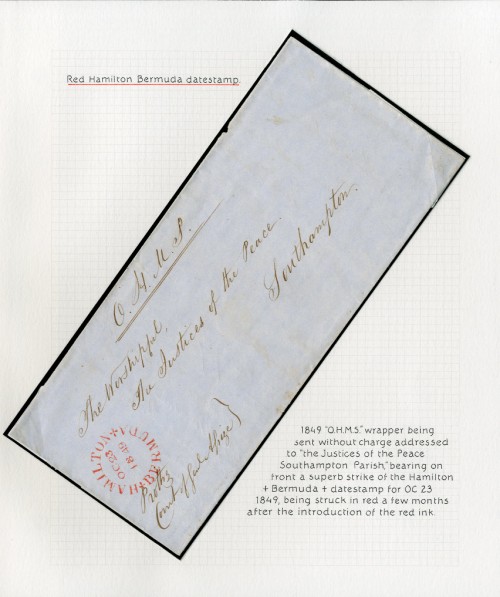 Red Hamilton Bermuda datestamp.
O. H. M. S.
The Worshipful,
The Justices of the Peace.
Southampton.
HAMILTON BERMUDA
OC 23
1849
1849 "O.H.M.S." wrapper being
sent without charge addressed
to "the Justices of the Peace
Southampton Parish," bearing on
front a superb strike of the Hamilton
+ Bermuda + datestamp for OC 23
1849, being struck in red a few months
after the introduction of the red ink.